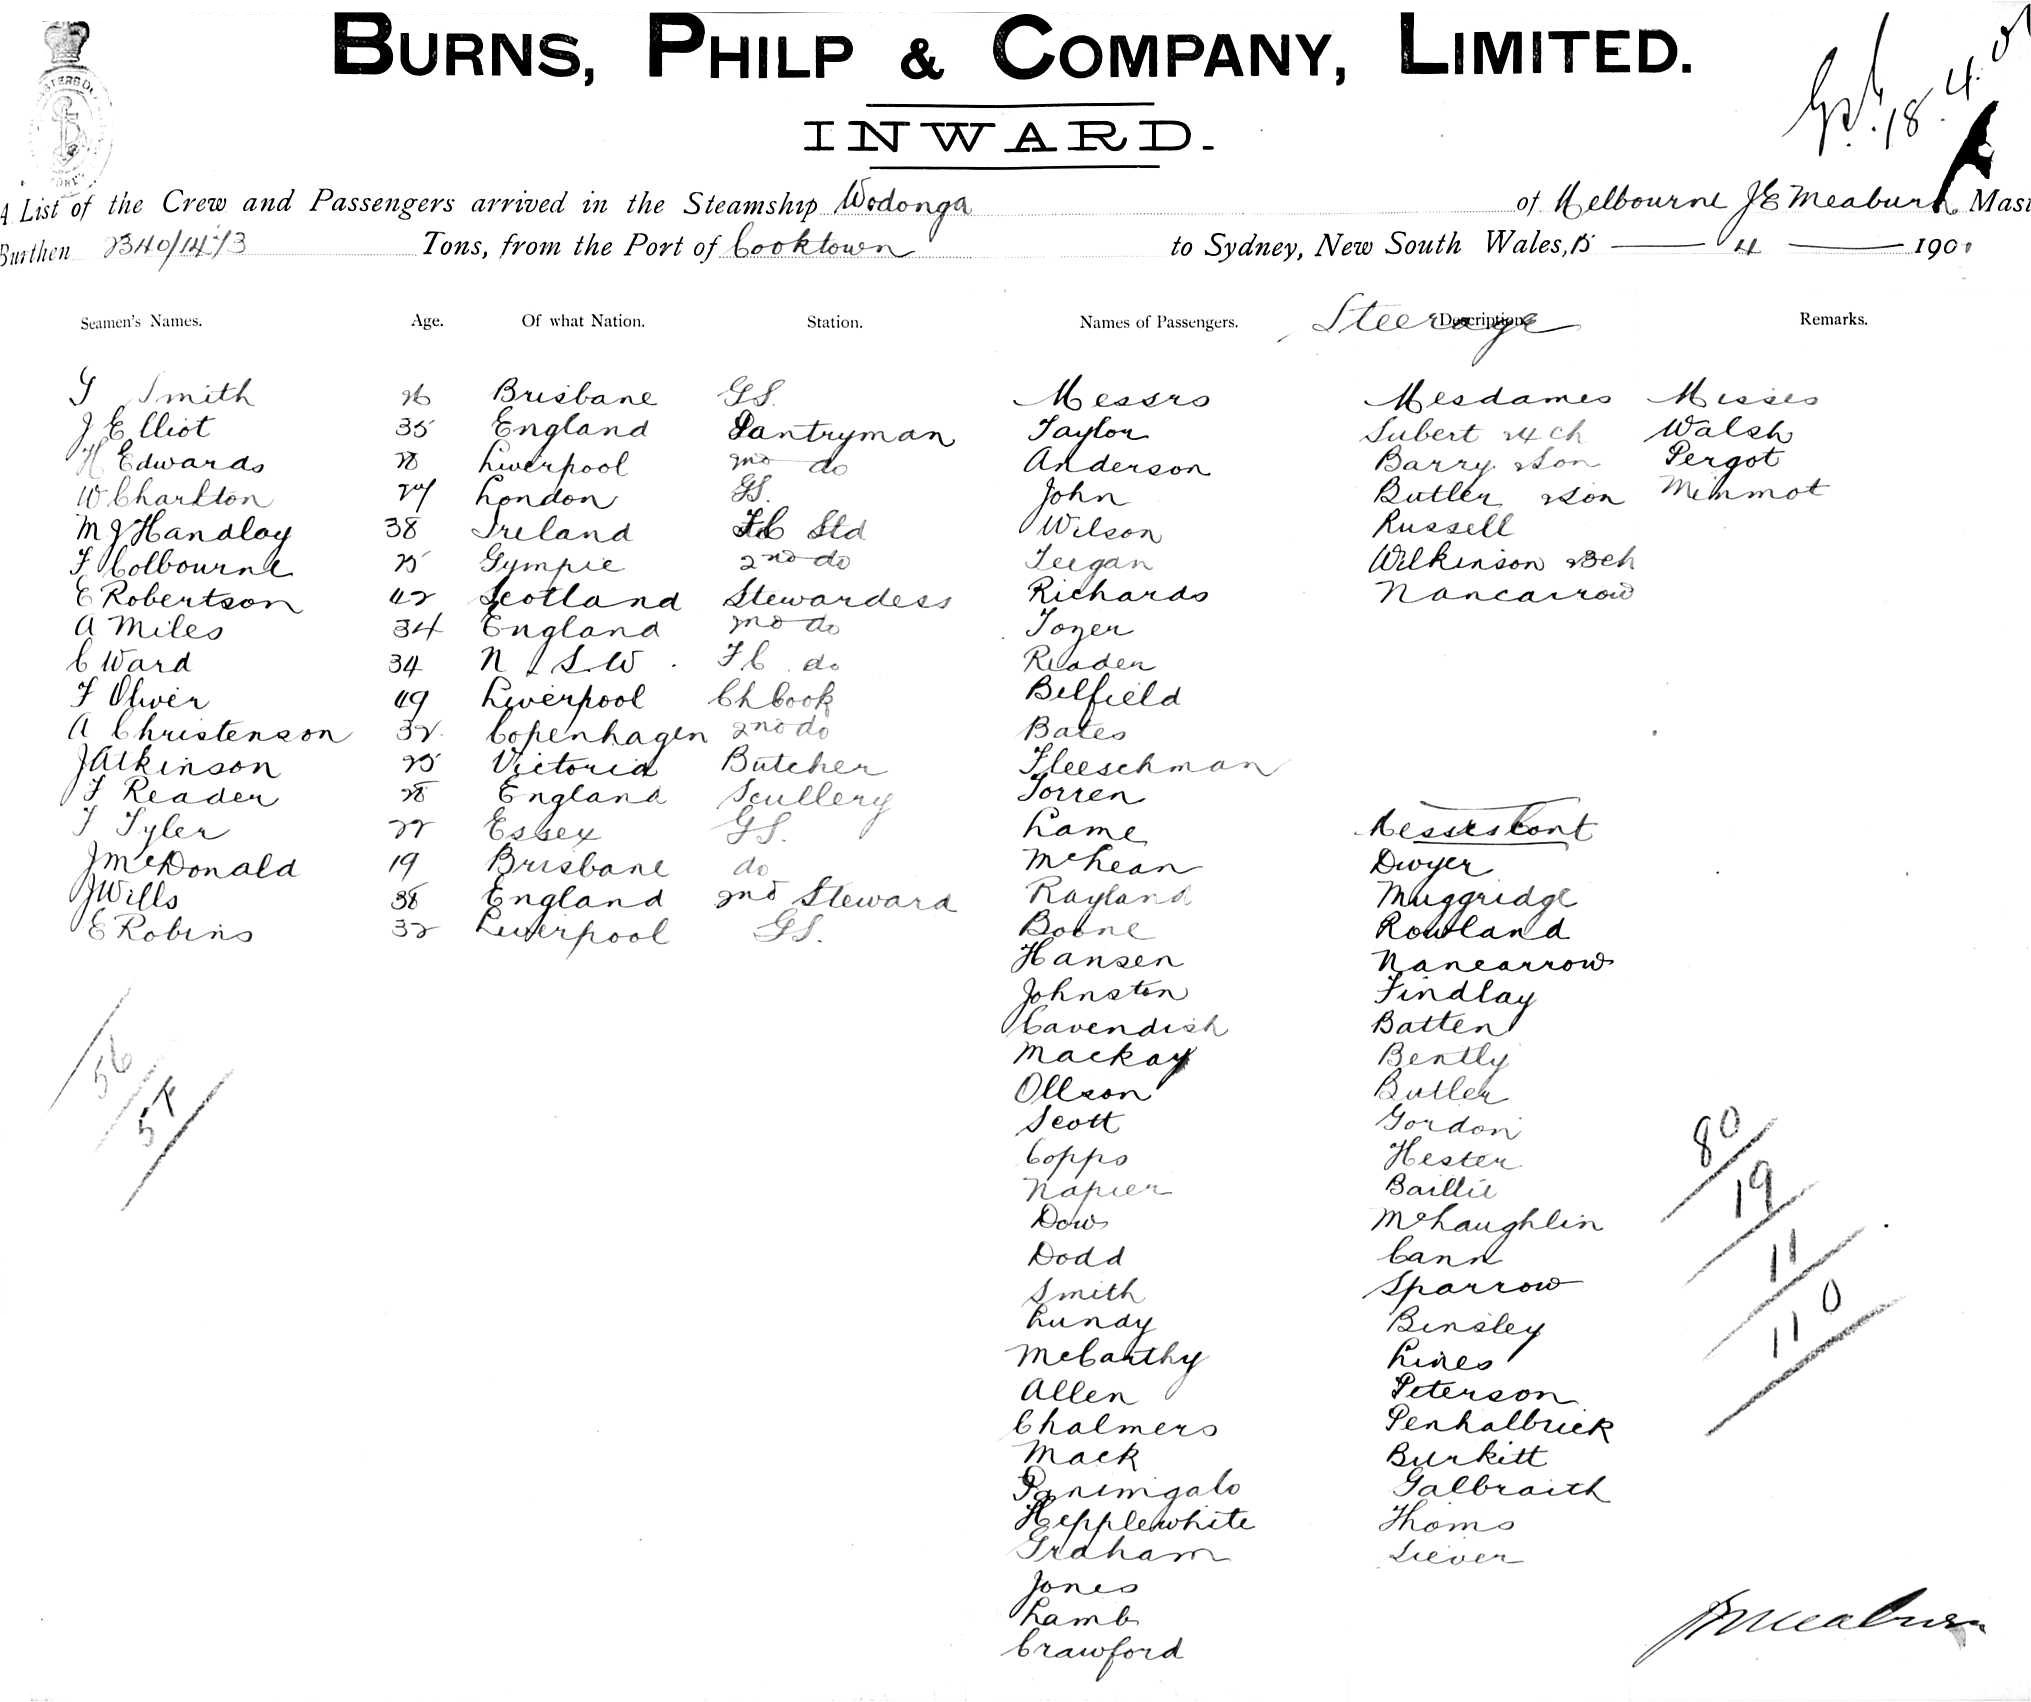 BURNS, PHILP & COMPANY, LIMITED.
18.4.01
INWARD.
A List of the Crew and Passengers arrived in the Steamship Wodonga of Melbourne J E Meaburn Mast
Burthen 2340/1473 Tons, from the Port of Cooktown to Sydney, New South Wales, 15 — 4 — 190
Seamen's Names. Age. Of what Nation. Station. Names of Passengers. Steerage Description Remarks.
G Smith 26 Brisbane G.S. Messrs Mesdames Misses
J Elliot 35 England Pantryman Taylor Subert & 4 ch Walsh
H Edwards 28 Liverpool 2nd do Anderson Barry & Son Pergot
W Charlton 24 London G.S. John Butler & Son Minmot
M J Handlay 38 Ireland F.C Std Wilson Russell
F Colbourne 25 Gympie 2nd do Teegan Wilkinson & 3 ch
E Robertson 42 Scotland Stewardess Richards Nancarrow
A Miles 34 England 2nd do Tozer
C Ward 34 N.S.W. F C do Reader
F Oliver 49 Liverpool Ch Cook Belfield
A Christenson 32 Copenhagen 2nd do Bates
J Atkinson 25 Victoria Butcher Fleeschman
F Reader 28 England Scullery Torren
T Tyler 22 Essex G.S. Lame
J McDonald 19 Brisbane do McLean Dwyer
J Wills 38 England 2nd Steward Rayland Muggridge
E Robins 32 Liverpool G.S. Boone Rowland
Hansen Nancarrow
Johnston Findlay
Cavendish Batten
56 Mackay Bently
57 Ollson Butler
Scott Gordon
80 Copps Hester
19 Napier Baillie
Dow McLaughlin
11 Dodd Cann
Smith Sparrow
110 Lundy Binsley
McCarthy Lines
Allen Peterson
Chalmers Penhalbrick
Mack Burkitt
Panimgalo Galbraith
Hepplewhite Thoms
Graham Siever
Jones
Lamb
Crawford
J E Meaburn